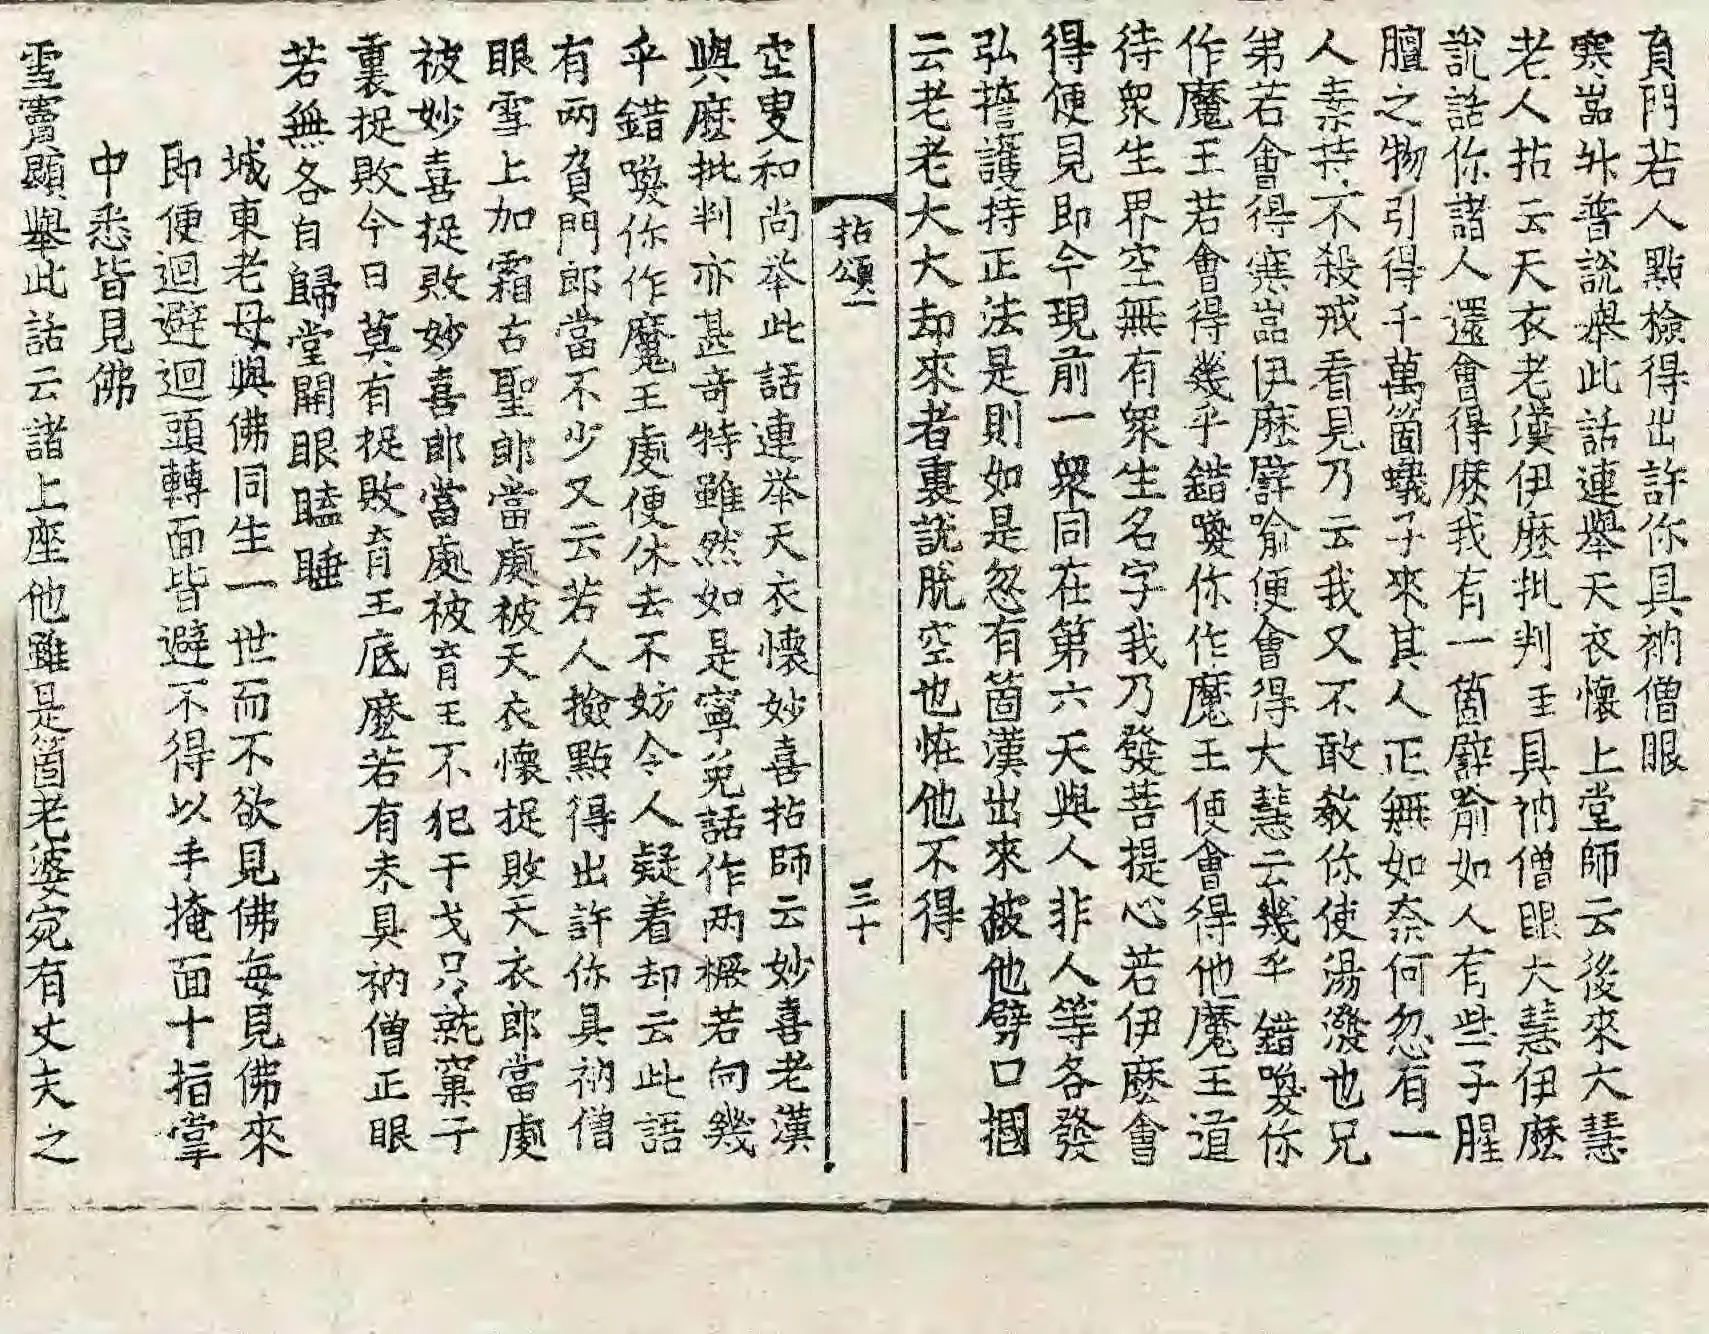 負門若人點檢得出許你具衲僧眼
寒嵓升普說舉此話連舉天衣懷上堂師云後來大慧
老人拈云天衣老漢伊麽批判玊具衲僧眼大慧伊麽
說話你諸人還會得麽我有一箇譬喻如人有些子腥
膻之物引得千萬箇蟻子來其人正無如奈何忽有一
人素持不殺戒看見乃云我又不敢教你使湯潑也兄
弟若會得寒嵓伊麽譬喻便會得大慧云幾乎錯喚你
作魔王若會得幾乎錯喚你作魔王便會得他魔王道
待眾生界空無有眾生名字我乃發菩提心若伊麽會
得便見即今現前一眾同在第六天與人非人等各發
弘誓護持正法是則如是忽有箇漢出來被他劈口摑
云老老大大却來者裏說脫空也恠他不得
拈頌一
三十
空叟和尚举此話連举天衣懷妙喜拈師云妙喜老漢
與麽批判亦甚竒特雖然如是寧免話作两橛若向幾
乎錯喚你作魔王處便休去不妨令人疑着却云此語
有两負門郎當不少又云若人撿點得出許你具衲僧
眼雪上加霜古聖郎當處被天衣懷捉敗天衣郎當處
被妙喜捉敗妙喜郎當處被育王不犯干戈只就窠子
裏捉敗今日莫有捉敗育王底麽若有未具衲僧正眼
若無各自歸堂開眼瞌睡
城東老母與佛同生一世而不欲見佛每見佛來
即便迴避迴頭轉面皆避不得以手掩面十指掌
中悉皆見佛
雪竇顯舉此話云諸上座他雖是箇老婆宛有丈夫之